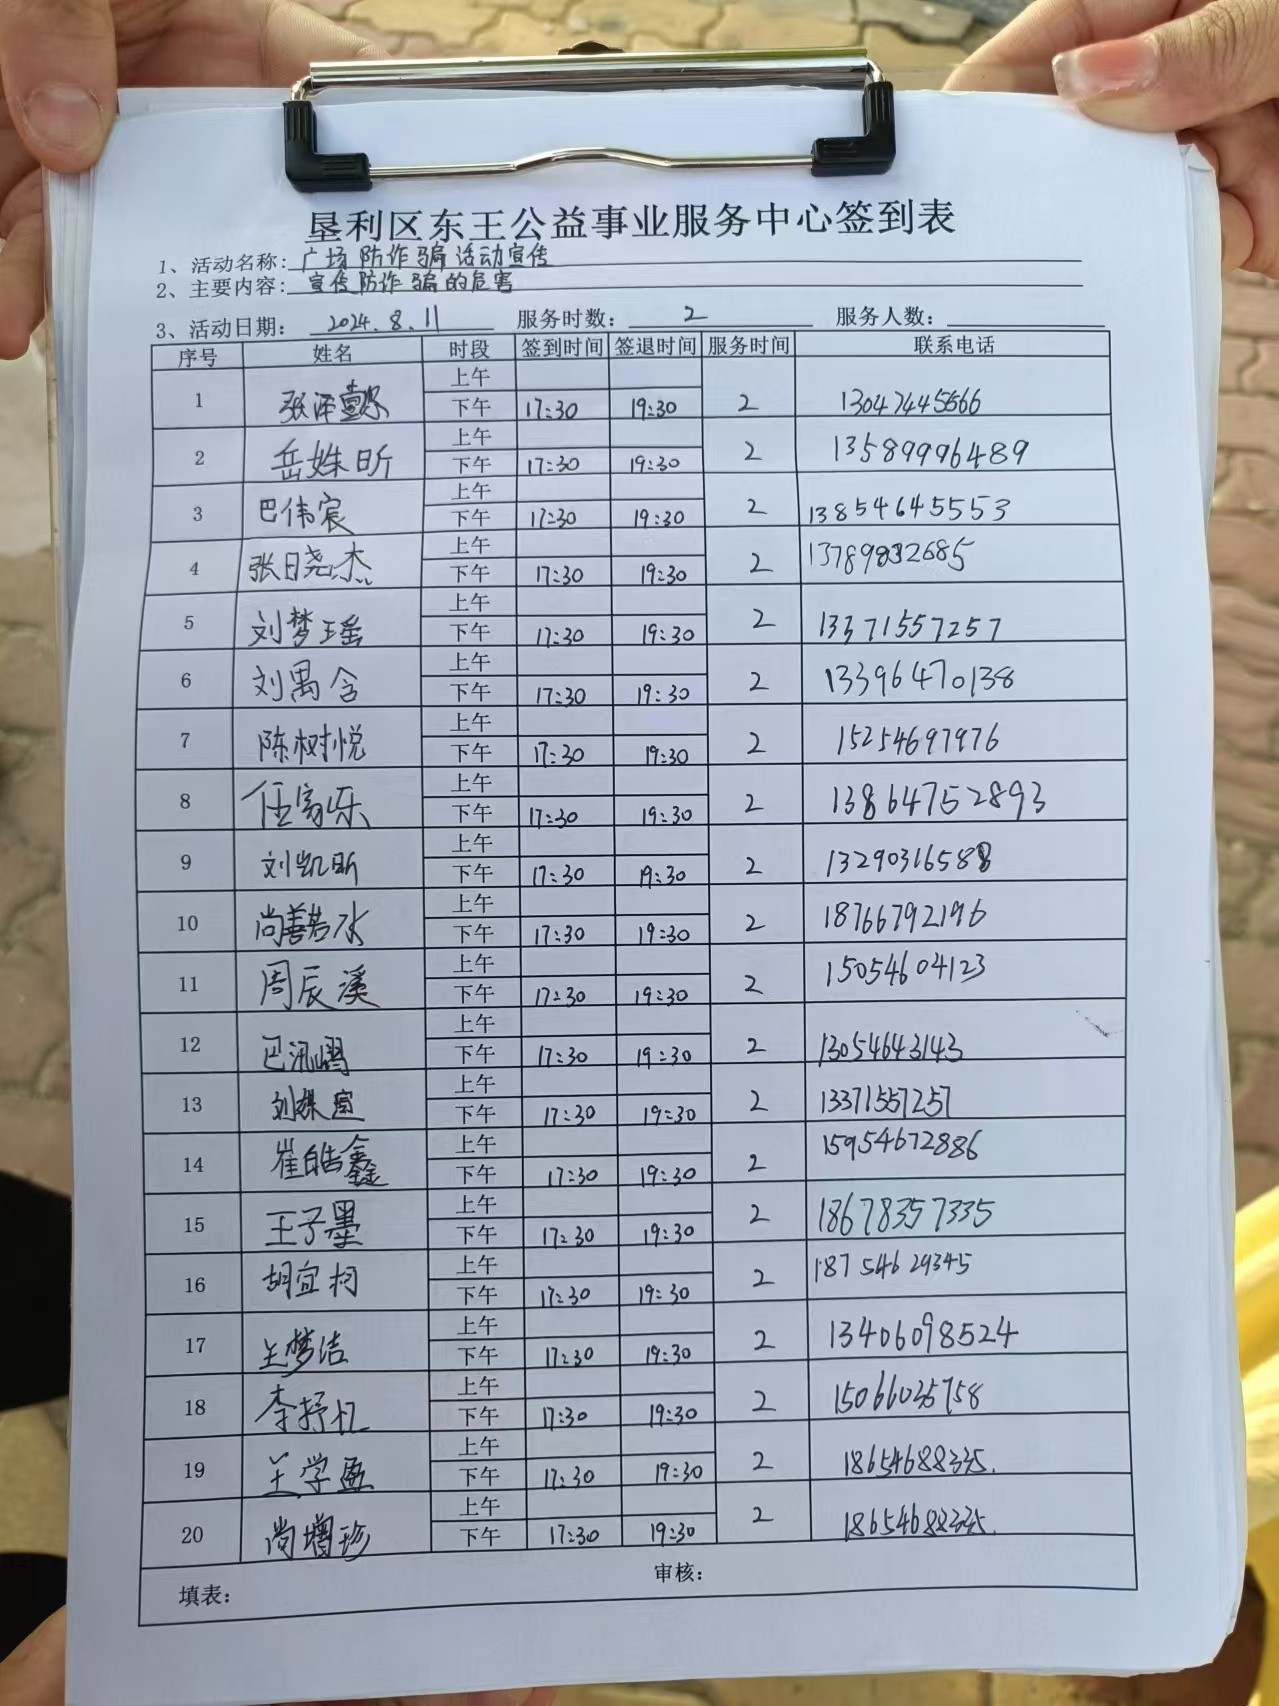 垦利区东王公益事业服务中心签到表
1、活动名称: 广场防诈骗活动宣传
2、主要内容: 宣传防诈骗的危害
3、活动日期: 2024.8.11 服务时数: 2 服务人数:
序号 姓名 时段 签到时间 签退时间 服务时间 联系电话
上午
1 张泽 下午 17:30 19:30 2 13047445666
上午
2 岳姝昕 下午 17:30 19:30 2 13589996489
上午
3 巴伟宸 下午 17:30 19:30 2 13854645553
上午
4 张日尧杰 下午 17:30 19:30 2 13789832685
上午
5 刘梦瑶 下午 17:30 19:30 2 13371557257
上午
6 刘禹含 下午 17:30 19:30 2 13396470138
上午
7 陈树悦 下午 17:30 19:30 2 15254697976
上午
8 任家乐 下午 17:30 19:30 2 13864752893
上午
9 刘凯昕 下午 17:30 19:30 2 13290316588
上午
10 尚善若水 下午 17:30 19:30 2 18766792196
上午
11 周辰溪 下午 17:30 19:30 2 15054604123
上午
12 巴 下午 17:30 19:30 2 13054643143
上午
13 刘 下午 17:30 19:30 2 13371557257
上午
14 崔皓鑫 下午 17:30 19:30 2 15954672886
上午
15 王子墨 下午 17:30 19:30 2 18678357335
上午
16 胡宜柯 下午 17:30 19:30 2 18754629345
上午
17 王梦洁 下午 17:30 19:30 2 13406098524
上午
18 李抒忆 下午 17:30 19:30 2 15066035758
上午
19 王学盈 下午 17:30 19:30 2 18654688335.
上午
20 尚增珍 下午 17:30 19:30 2 18654688335.
填表: 审核: